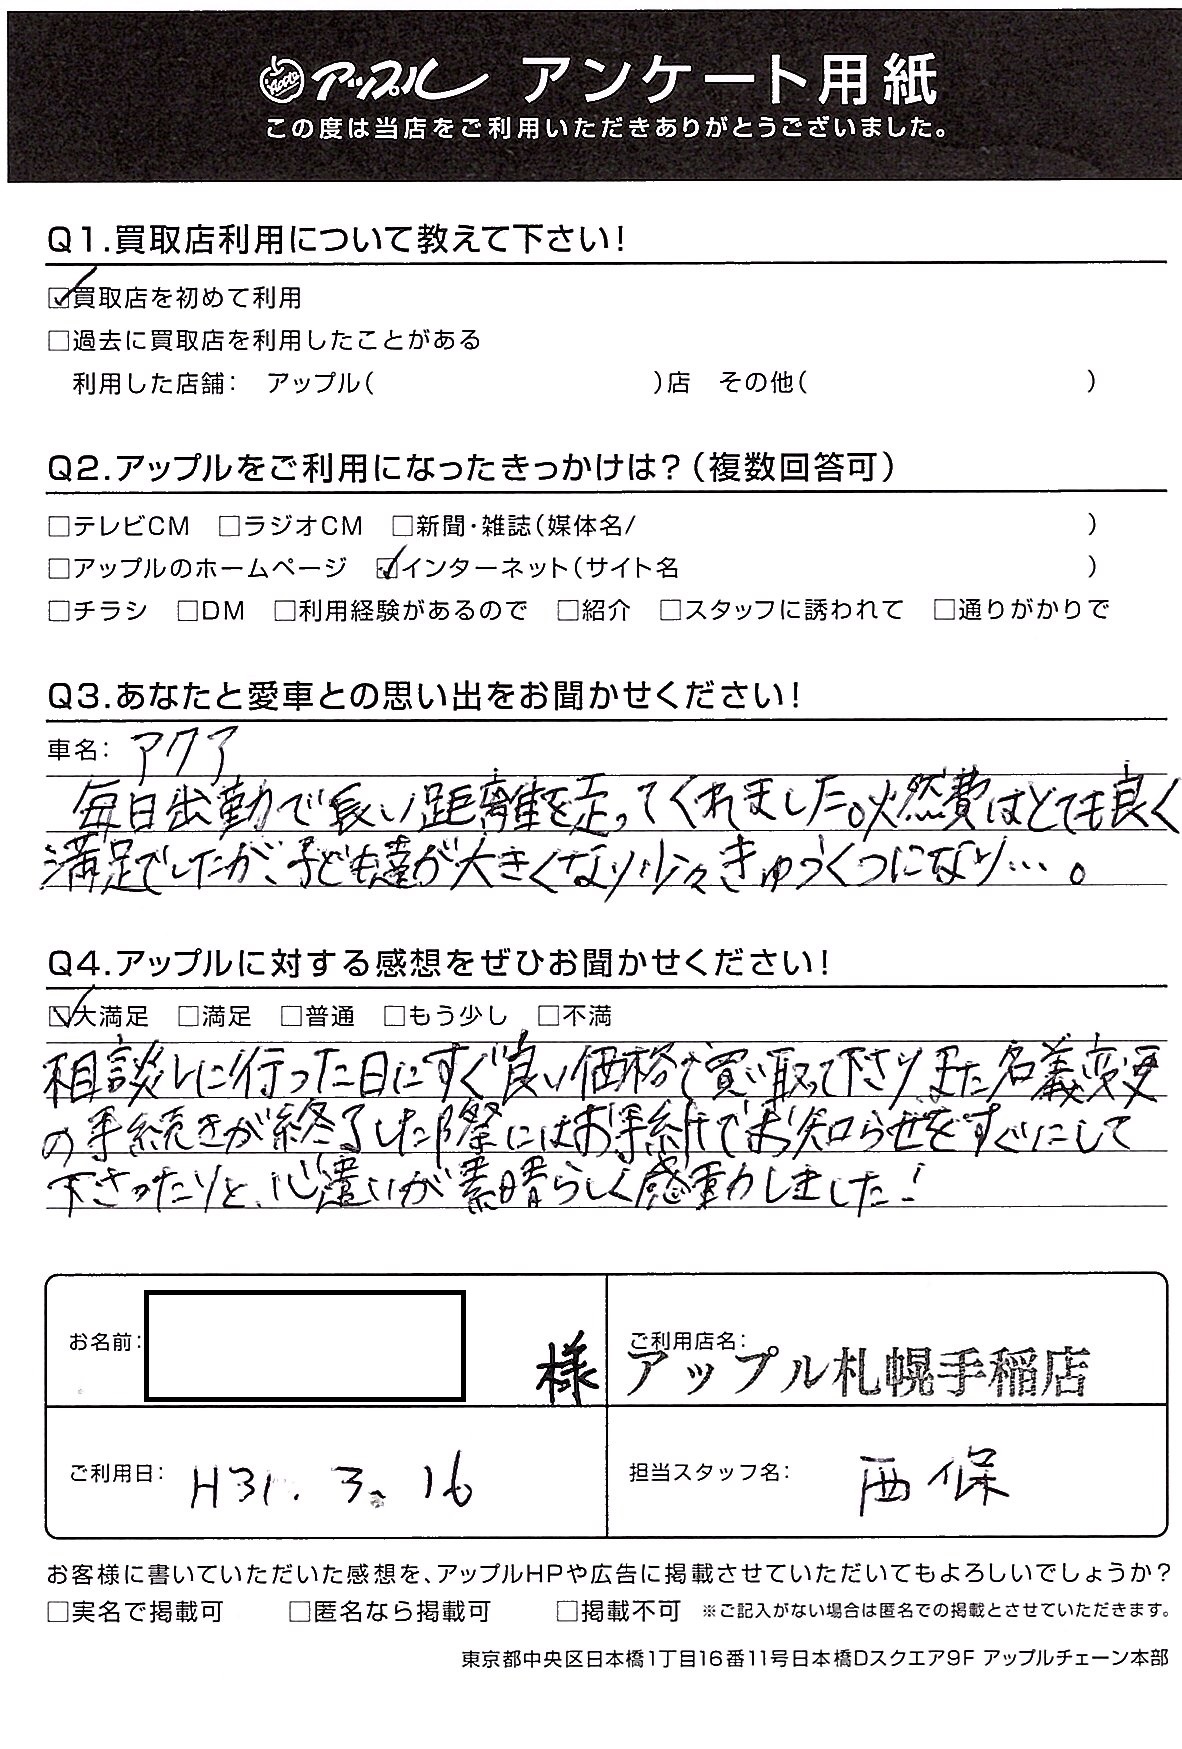 Apple アップル アンケート用紙
この度は当店をご利用いただきありがとうございました。
Q1.買取店利用について教えて下さい!
☑買取店を初めて利用
□過去に買取店を利用したことがある
利用した店舗: アップル( )店 その他( )
Q2.アップルをご利用になったきっかけは?(複数回答可)
□テレビCM □ラジオCM □新聞・雑誌(媒体名/ )
□アップルのホームページ ☑インターネット(サイト名 )
□チラシ □DM □利用経験があるので □紹介 □スタッフに誘われて □通りがかりで
Q3.あなたと愛車との思い出をお聞かせください!
車名: アクア
毎日出勤で長い距離を走ってくれました。燃費はとても良く
満足でしたが、子ども達が大きくなり少々きゅうくつになり…。
Q4.アップルに対する感想をぜひお聞かせください!
☑大満足 □満足 □普通 □もう少し □不満
相談しに行った日にすぐ良い価格で買い取って下さり、また名義変更
の手続きが終了した際にはお手紙でお知らせをすぐにして
下さったりと、心遣いが素晴らしく感動しました!
お名前: 様
ご利用店名: アップル札幌手稲店
ご利用日: H31. 3. 16
担当スタッフ名: 西保
お客様に書いていただいた感想を、アップルHPや広告に掲載させていただいてもよろしいでしょうか?
□実名で掲載可 □匿名なら掲載可 □掲載不可 ※ご記入がない場合は匿名での掲載とさせていただきます。
東京都中央区日本橋1丁目16番11号日本橋Dスクエア9F アップルチェーン本部